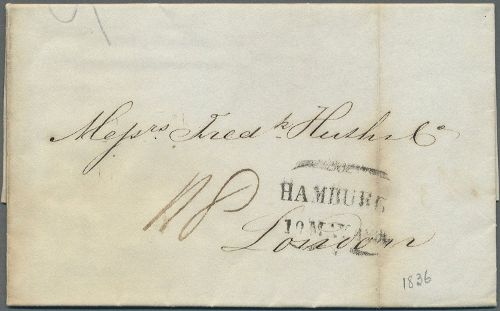 Messrs. Fredk. Huth & Co
1/8
HAMBURG
10 MAY
London
1836